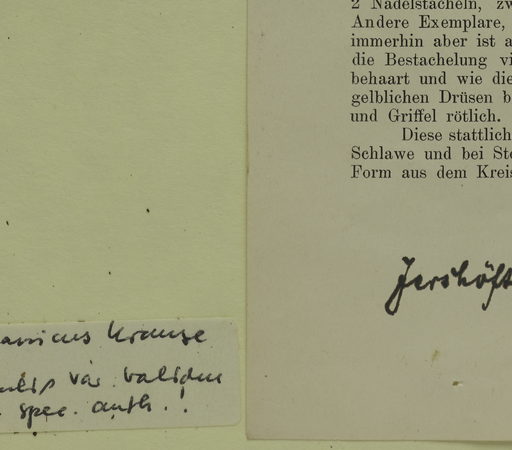 2 Nadelstacheln, zw
Andere Exemplare,
immerhin aber ist a
die Bestachelung vi
behaart und wie die
gelblichen Drüsen b
und Griffel rötlich.
Diese stattlich
Schlawe und bei Sto
Form aus dem Kreis
Jershöft
Krause
var. validus
spec. auth.!